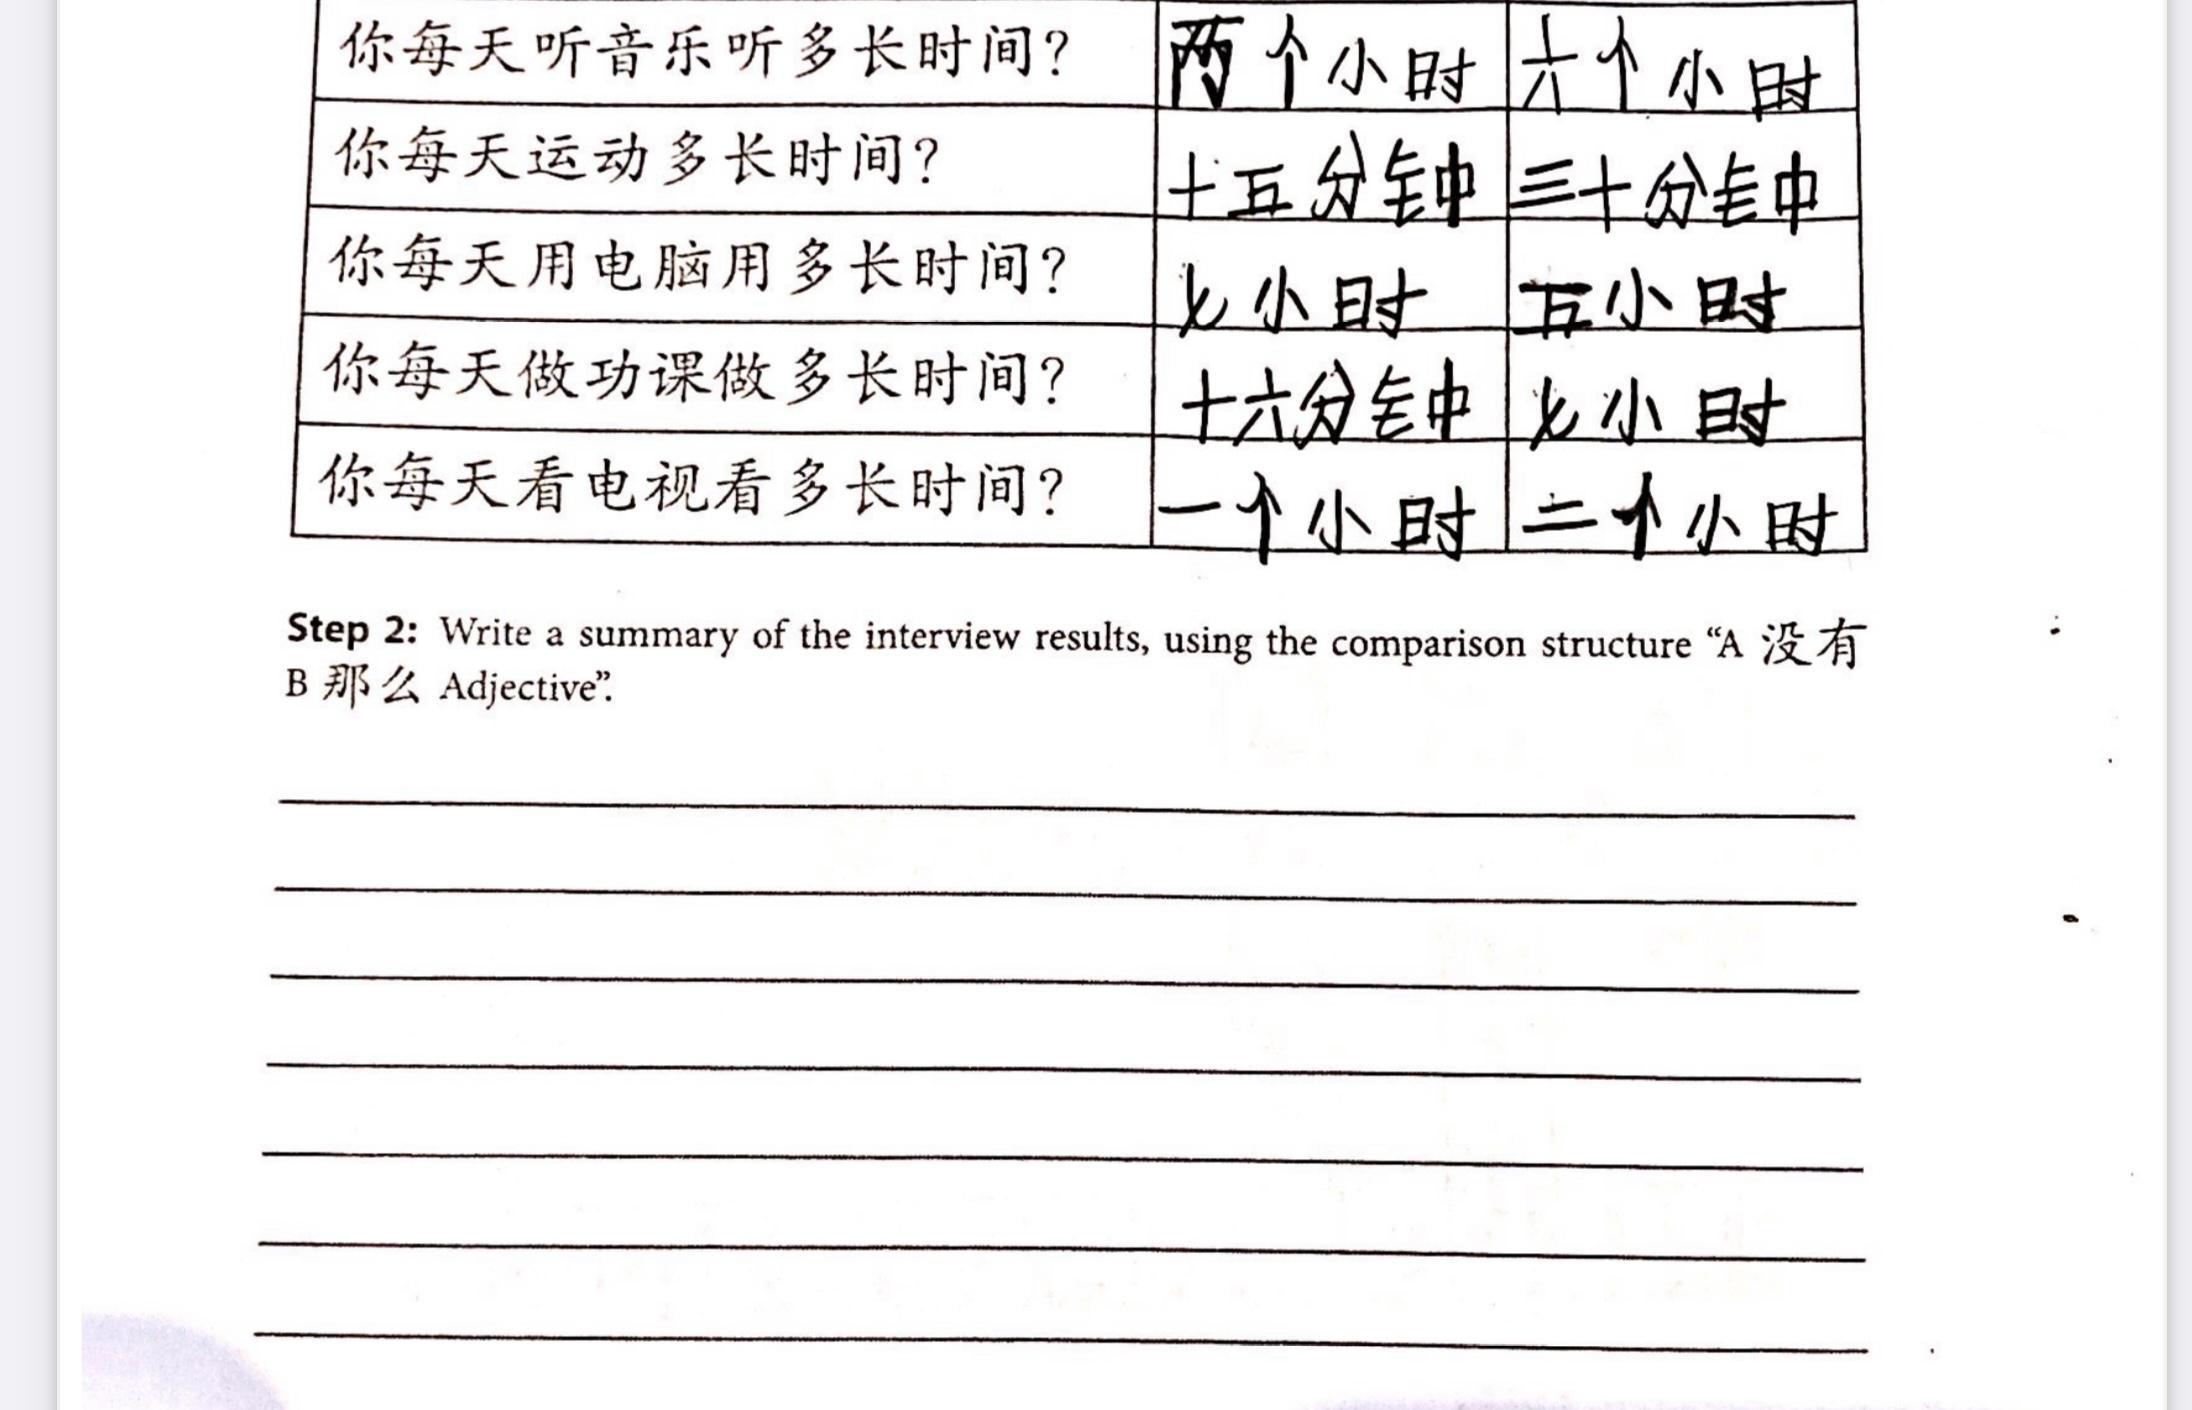 你每天听音乐听多长时间? 两个小时 六个小时
你每天运动多长时间? 十五分钟 三十分钟
你每天用电脑用多长时间? 七小时 五小时
你每天做功课做多长时间? 十六分钟 七小时
你每天看电视看多长时间? 一个小时 二个小时
Step 2: Write a summary of the interview results, using the comparison structure “A 没有
B 那么 Adjective”.